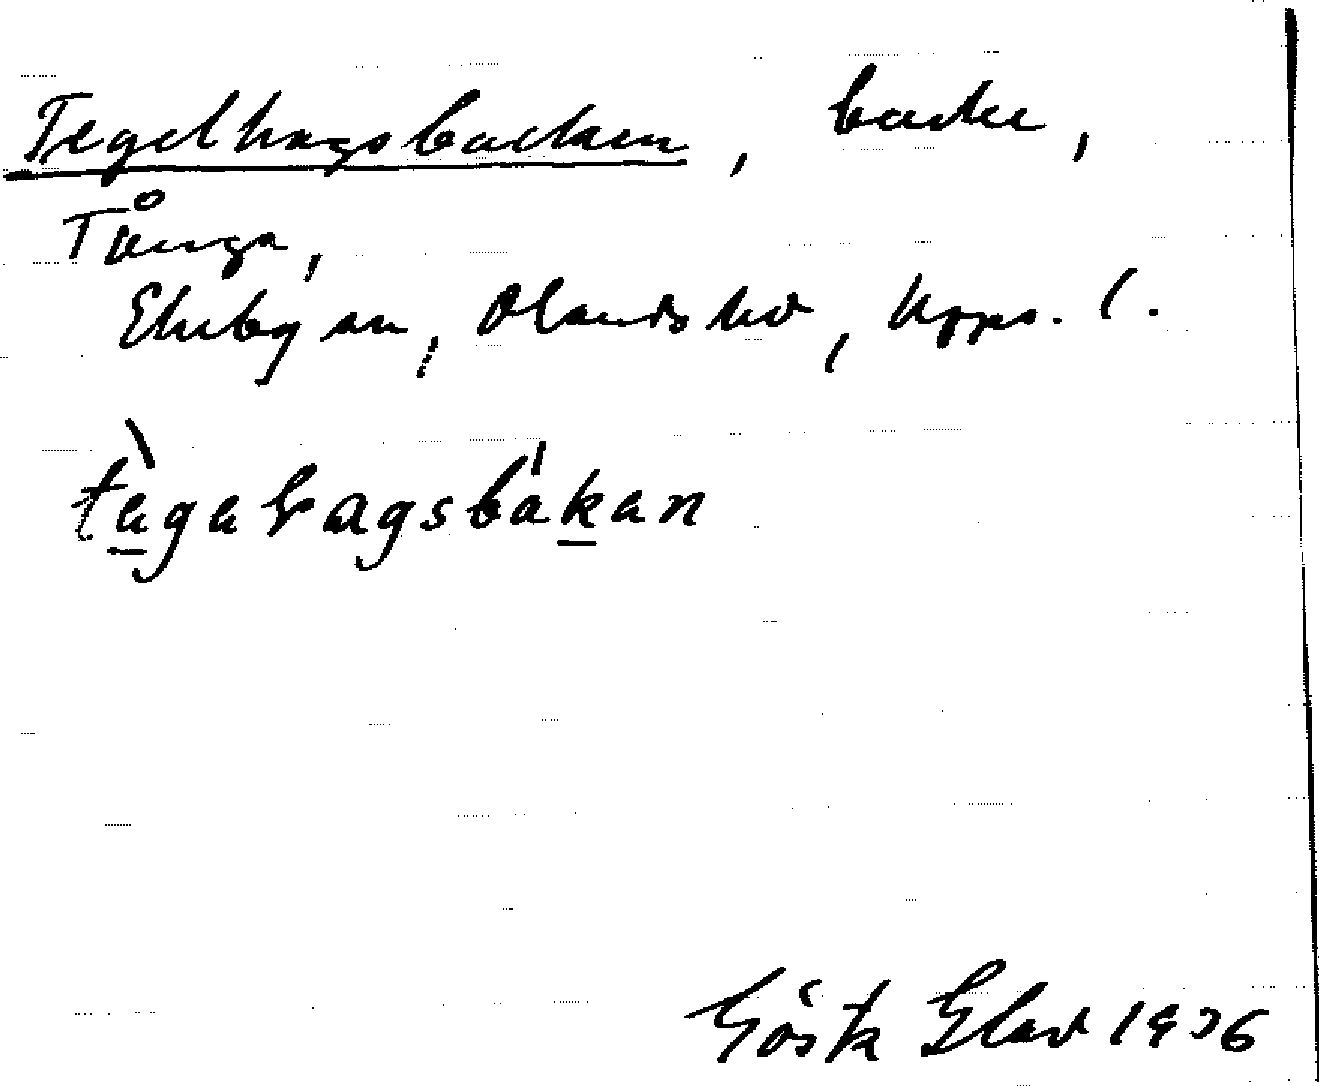 Tegelhagsbacken, backe,
Tånga,
Ekeby sn, Olands hd, Upps. l.
tegahagsbakan
Gösta 1936